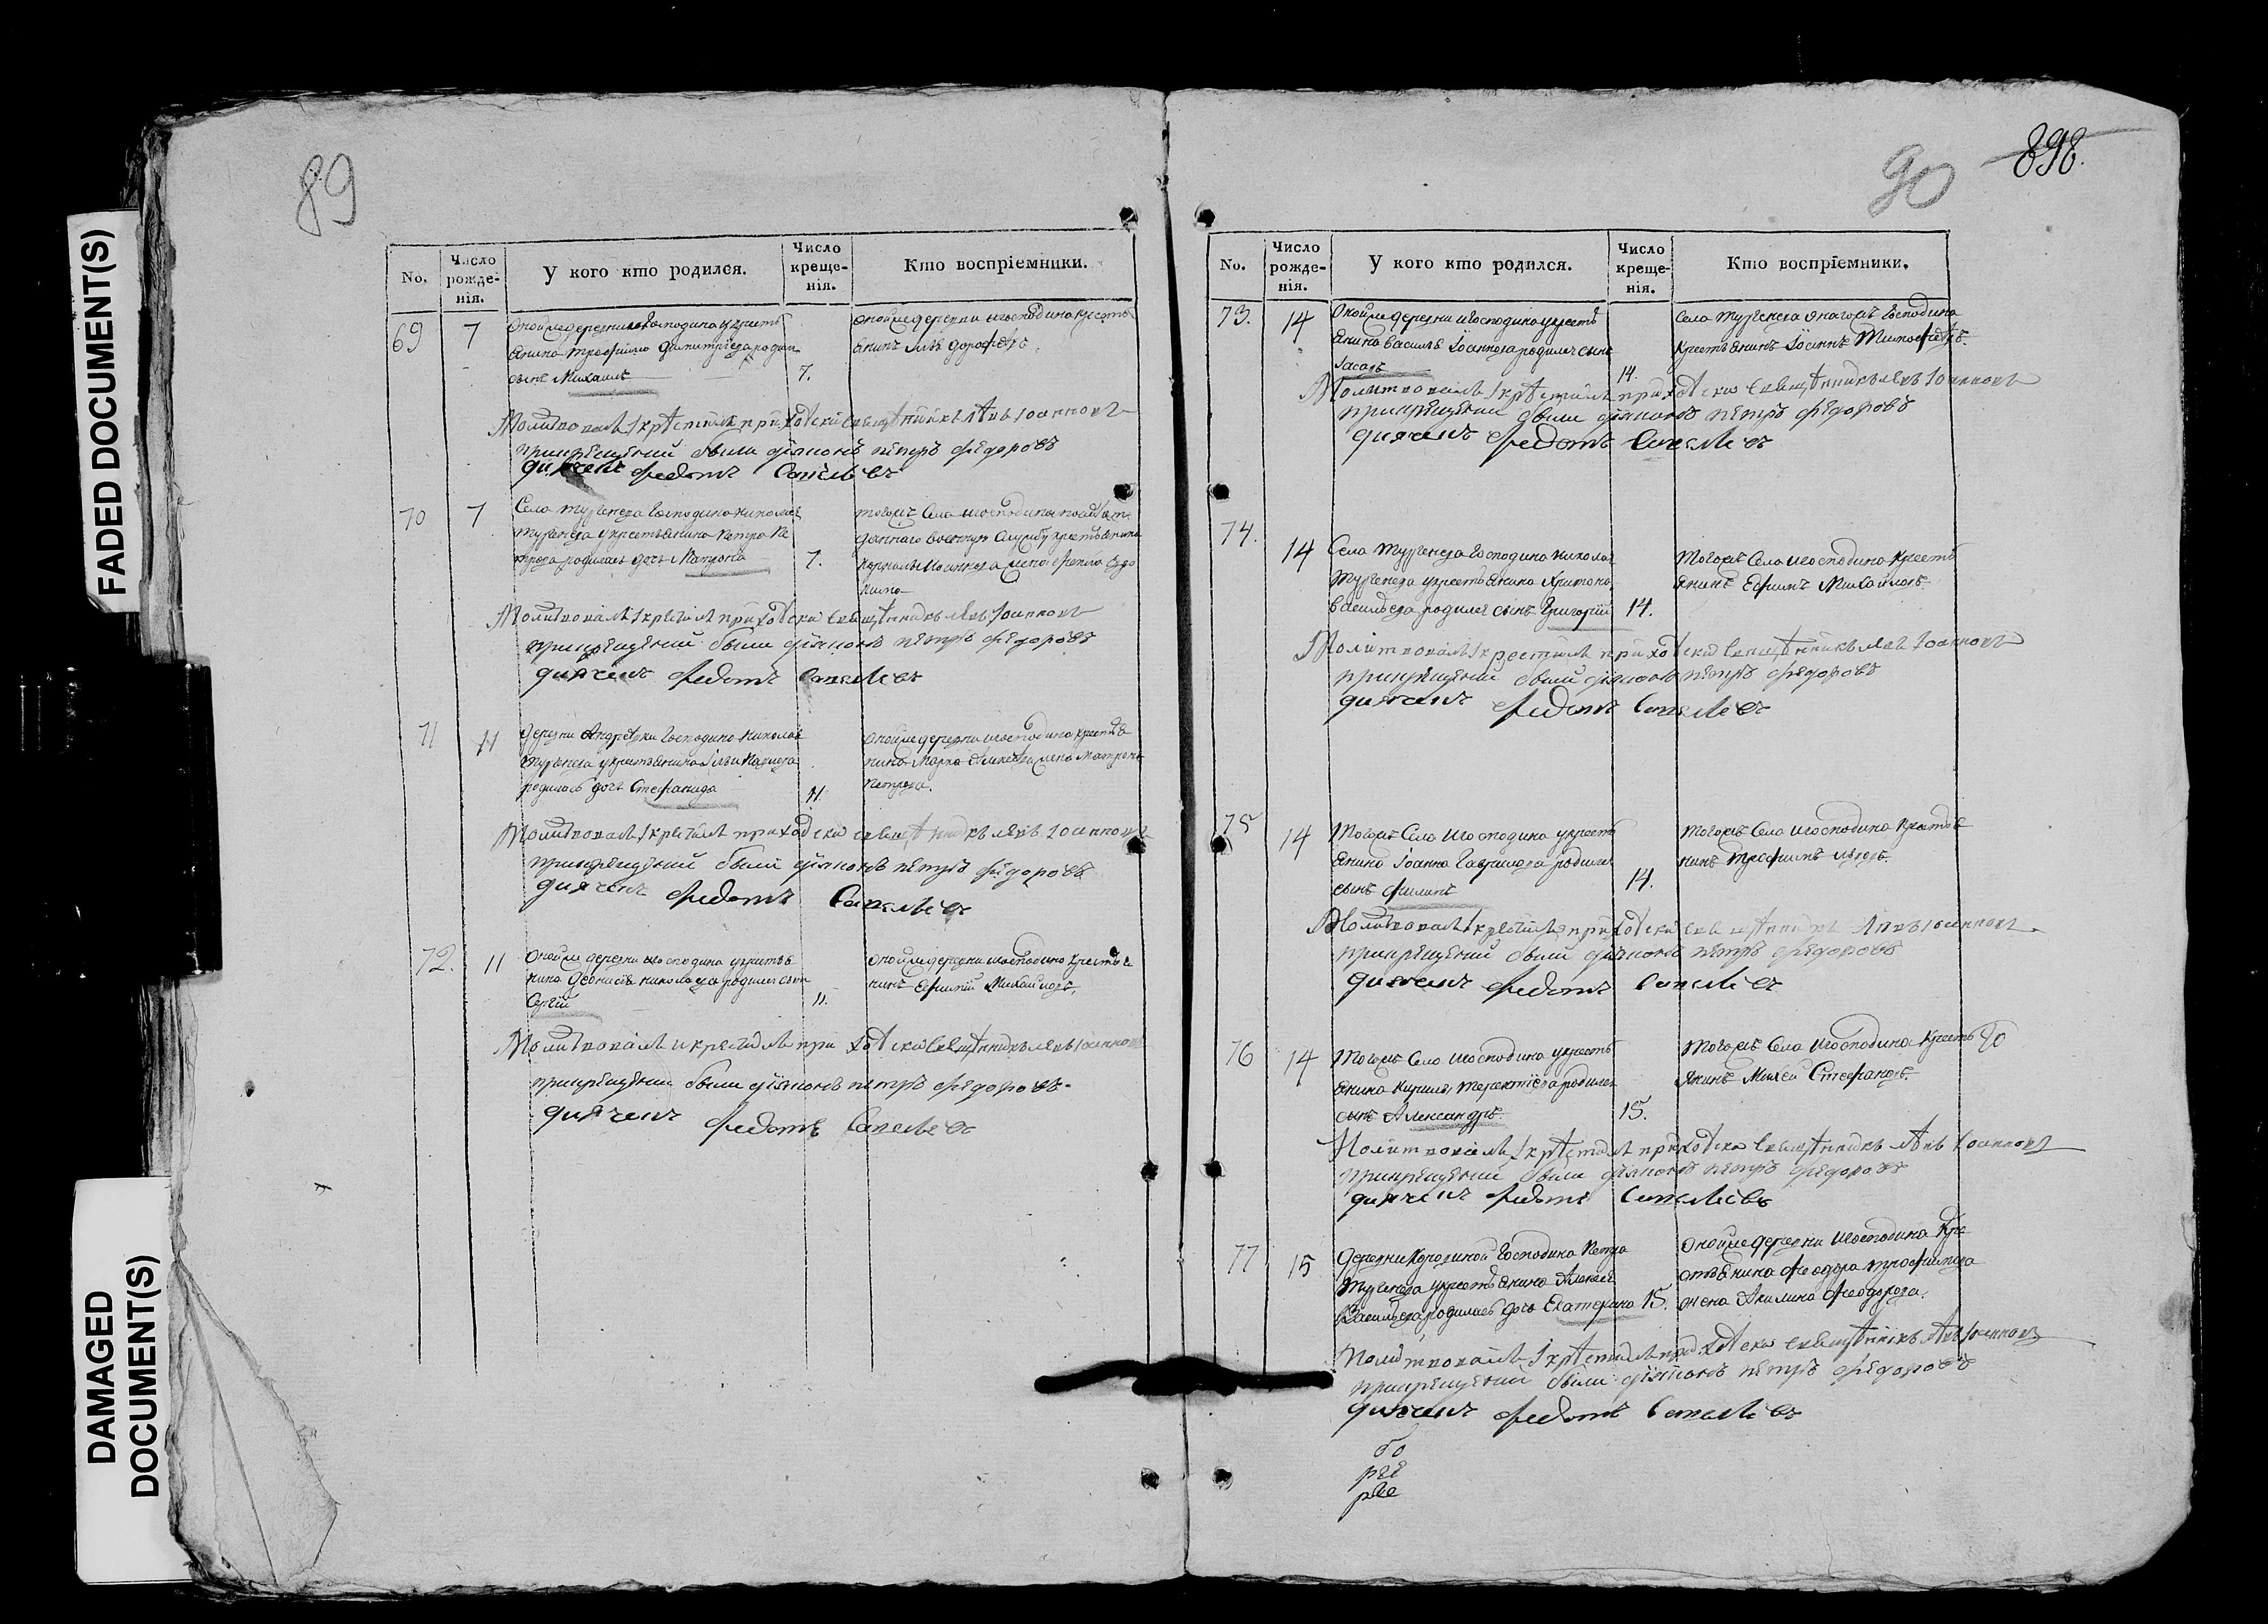 FADED DOCUMENT(S)
DAMAGED DOCUMENT(S)
89
No.
Число рожде-нія.
У кого кто родился.
Число креще-нія.
Кто воспріемники.
69
7
Оной же деревни и господина у кресть
янина Трофима Димитріева родил
сынъ Михаилъ
7.
Оной же деревни и господина кресть
янинъ Дорофей
Молитвовалъ и крестилъ приходскій священникъ Левъ Іоанновъ
при крещеніи были діаконъ Петръ Федоровъ
дьячекъ Федотъ Савельевъ
70
7
Села Тургенева Господина Николая
Тургенева у крестьянина Петра Пе
трова родилась дочь Матрона
7.
Того же Села и господина
даннаго Военную Службу крестьянина
жена
Молитвовалъ и крестилъ приходскій священникъ Левъ Іоанновъ
при крещеніи были діаконъ Петръ Федоровъ
дьячекъ Федотъ Савельевъ
71
11
Деревни Андреевки Господина Николая
Тургенева у крестьянина Ильи Карпова
родилась дочь Стефанида
11.
Оной же деревни и господина крестья
нина Марка жена Матрона
Петрова.
Молитвовалъ и крестилъ приходскій священникъ Левъ Іоанновъ
при крещеніи были діаконъ Петръ Федоровъ
дьячекъ Федотъ Савельевъ
72.
11
Оной же деревни и господина у крестья
нина Дениса Николаева родился сынъ
Сергій
11.
Оной же деревни и господина крестья
нинъ Ефимій Михайловъ.
Молитвовалъ и крестилъ приходскій священникъ Левъ Іоанновъ
при крещеніи были діаконъ Петръ Федоровъ
дьячекъ Федотъ Савельевъ
90
898.
No.
Число рожде-нія.
У кого кто родился.
Число креще-нія.
Кто воспріемники.
73.
14
Оной же деревни и господина у кресть
янина Василья Іоаннова родился сынъ
14.
Села Тургенева онаго же Господина
Крестьянинъ Іоаннъ Тимофеевъ.
Молитвовалъ и крестилъ приходскій священникъ Левъ Іоанновъ
при крещеніи были діаконъ Петръ Федоровъ
дьячекъ Федотъ Савельевъ
74.
14
Села Тургенева Господина Николая
Тургенева у крестьянина Харитона
Васильева родился сынъ Григорій
14.
Того же Села и господина Кресть
янинъ Ефимъ Михайловъ.
Молитвовалъ и крестилъ приходскій священникъ Левъ Іоанновъ
при крещеніи были діаконъ Петръ Федоровъ
дьячекъ Федотъ Савельевъ
75
14
Того же Села и господина у кресть
янина Іоанна Гаврилова родился
сынъ Филипъ
14.
Того же Села и господина Крестья
нинъ Трофимъ Львовъ.
Молитвовалъ и крестилъ приходскій священникъ Левъ Іоанновъ
при крещеніи были діаконъ Петръ Федоровъ
дьячекъ Федотъ Савельевъ
76
14
Того же Села и господина у кресть
янина Кирилы Терентіева родился
сынъ Александръ.
15.
Того же Села и господина Кресть
янинъ Стефановъ.
Молитвовалъ и крестилъ приходскій священникъ Левъ Іоанновъ
при крещеніи были діаконъ Петръ Федоровъ
дьячекъ Федотъ Савельевъ
77
15
Деревни Господина Петра
Тургенева у крестьянина Алексея
Васильева родилась дочь Екатерина
15.
Оной же деревни и господина Кре
стьянина Феодора Трофимова
жена Акилина Феодорова.
Молитвовалъ и крестилъ приходскій священникъ Левъ Іоанновъ
при крещеніи были діаконъ Петръ Федоровъ
дьячекъ Федотъ Савельевъ